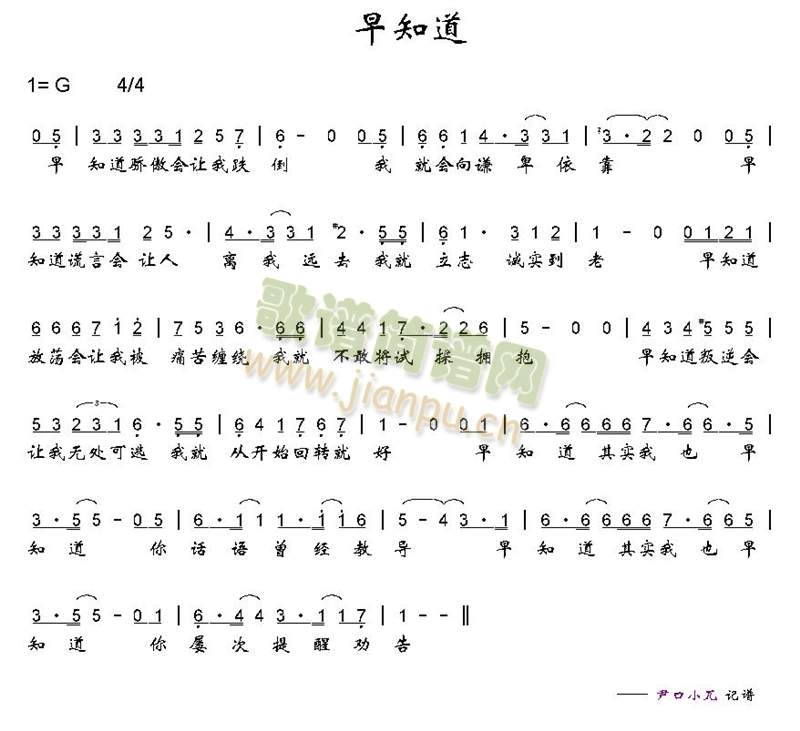 早知道
1= G 4/4
0 5 | 3 3 3 3 3 1 2 5 7 | 6 - 0 0 5 | 6 6 1 4 · 3 3 3 1 | 2 3 · 2 2 0 0 5 |
早 知道骄傲会让我跌 倒 我 就会向谦 卑 依 靠 早
3 3 3 3 3 1 2 5 · | 4 · 3 3 1 #2 · 5 5 | 6 1 · 3 1 2 | 1 - 0 0 1 2 1 |
知道谎言会 让人 离 我 远 去 我就 立志 诚实到 老 早知道
6 6 6 7 1 2 | 7 5 3 6 · 6 6 | 4 4 1 7 · 2 2 6 | 5 - 0 0 | 4 3 4 #5 5 5 |
放荡会让我被 痛苦缠绕 我就 不敢将试 探 拥 抱 早知道叛逆会
5 3 2 3 1 6 · 5 5 | 6 4 1 7 6 7 | 1 - 0 0 1 | 6 · 6 6 6 6 6 7 · 6 6 · 5 |
让我无处可逃 我就 从开始回转就 好 早 知 道 其实我 也 早
3 · 5 5 - 0 5 | 6 · 1 1 1 · 1 1 6 | 5 - 4 3 · 1 | 6 · 6 6 6 6 6 7 · 6 6 5 |
知 道 你 话 语 曾 经 教 导 早 知 道 其实我 也 早
3 · 5 5 - 0 1 | 6 · 4 4 3 · 1 1 7 | 1 - - ‖
知 道 你 屡 次 提 醒 劝 告
歌谱简谱网
www.jianpu.cn
—— 尹口小兀 记谱